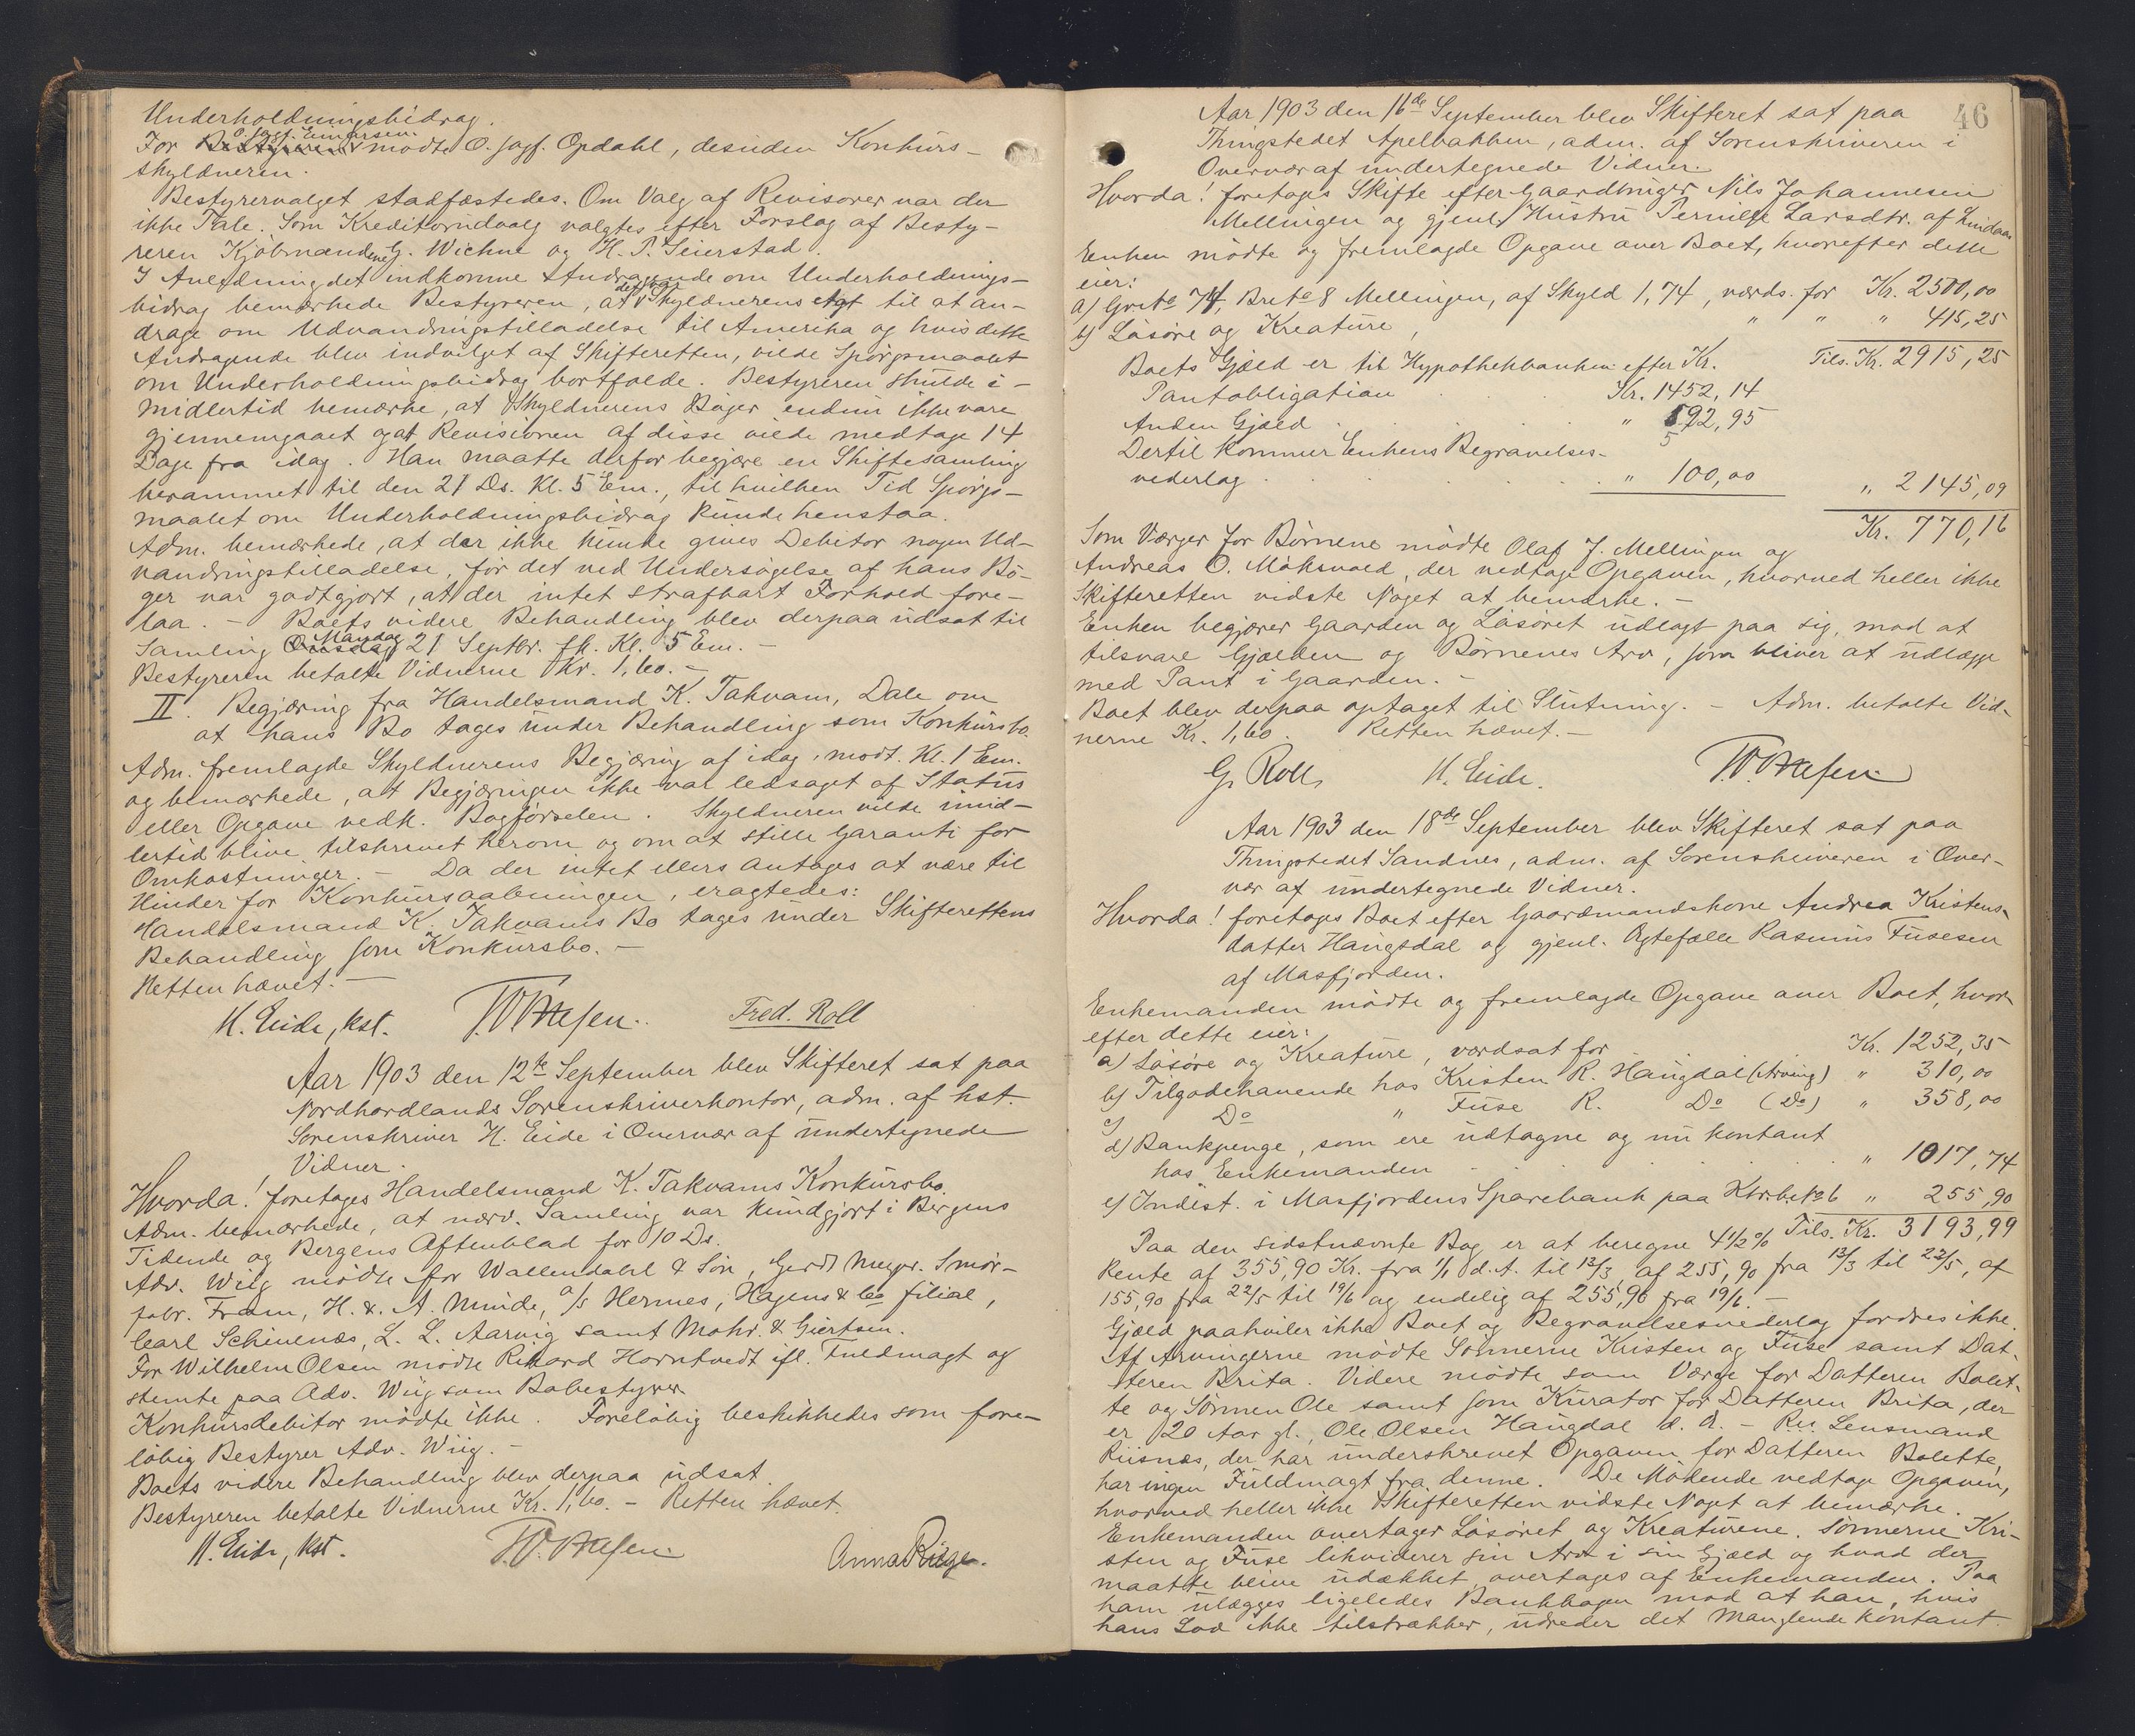 Underholdningsbidrag.
o. sagf. Einarsen
For Bestyreren mødte O. sagf. Opdahl, desuden Konkurs-
skyldneren.
Bestyrervalget stadfæstedes. Om Valg af Revisorer var der
ikke Tale. Som Kreditorudvalg valgtes efter Forslag af Besty-
reren Kjøbmændene G. Wichne og H. P. Seierstad.
I Anledning det indkomne Andragende om Underholdnings-
bidrag bemærkede Bestyreren, at det var Skyldnerens Agt til at an-
drage om Udvandringstilladelse til Amerika og hvis dette
Andragende blev indvilget af Skifteretten, vilde Spørgsmaalet
om Underholdningsbidrag bortfalde. Bestyreren skulde i-
midlertid bemærke, at Skyldnerens Bøger endnu ikke vare
gjennemgaaet og at Revisionen af disse vilde medtage 14
Dage fra idag. Han maatte derfor begjære en Skiftesamling
berammet til den 21 Ds. Kl. 5 Em., til hvilken Tid Spørgs-
maalet om Underholdningsbidrag kunde henstaa.
Adm. bemærkede, at der ikke kunde gives Debitor nogen Ud-
vandringstilladelse, før det ved Undersøgelse af hans Bø-
ger var godtgjort, at der intet strafbart Forhold fore-
laa. - Boets videre Behandling blev derpaa udsat til
Samling Onsdag Mandag 21 Septbr. ft. Kl. 5 Em. -
Bestyreren betalte Vidnerne Kr. 1,60. -
II. Begjæring fra Handelsmand K. Takvam, Dale om
at hans Bo tages under Behandling som Konkursbo.
Adm. fremlagde Skyldnerens Begjæring af idag, modt. Kl. 1 Em.
og bemærkede, at Begjæringen ikke var ledsaget af Status
eller Opgave vedk. Bogførselen. Skyldneren vilde imid-
lertid blive tilskrevet herom og om at stille Garanti for
Omkostninger. - Da der intet ellers antages at være til
Hinder for Konkursaabningen, eragtedes:
Handelsmand K. Takvams Bo tages under Skifterettens
Behandling som Konkursbo. -
Retten hævet. -
H. Eide, kst. Fred. Roll
Aar 1903 den 12te September blev Skifteret sat paa
Nordhordlands Sorenskriverkontor, adm. af kst.
Sorenskriver H. Eide i Overvær af undertegnede
Vidner.
Hvorda! foretages Handelsmand K. Takvams Konkursbo.
Adm. bemærkede, at nærv. Samling var kundgjort i Bergens
Tidende og Bergens Aftenblad for 10 Ds.
Adv. Wiig mødte for Wallendahl & Søn, Gerdt Meyer. Smør-
fabr. Fram, H. & A. Minde, a/s Hermes, Hagens & Co filial,
Carl Schienæs, L. L. Aarvig samt Mohr & Giertsen.
For Wilhelm Olsen mødte Rikard Horntvedt ifl. Fuldmagt og
stemte paa Adv. Wiig som Bobestyrer.
Konkursdebitor mødte ikke. Foreløbig beskikkedes som fore-
løbig Bestyrer Adv. Wiig. -
Boets videre Behandling blev derpaa udsat.
Bestyreren betalte Vidnerne Kr. 1,60. - Retten hævet.
H. Eide, kst. Anna Rieger.
46
Aar 1903 den 16de September blev Skifteret sat paa
Thingstedet Apelbakken, adm. af Sorenskriveren i
Overvær af undertegnede Vidner.
Hvorda! foretages Skifte efter Gaardbruger Nils Johannesen
Mellingen og gjenl. Hustru Pernille Larsdtr. af Lindaas
Enken mødte og fremlagde Opgave over Boet, hvorefter dette
eier:
a) Gr.no 74, Br.no 8 Mellingen, af Skyld 1,74, værds. for Kr. 2500,00
b) Løsøre og Kreature, " " " 415,25
Tils. Kr. 2915,25
Boets Gjæld er til Hypothekbanken efter Kr.
Pantobligation Kr. 1452,14
Anden Gjæld " 592,95
5
Dertil kommer Enkens Begravelses-
vederlag " 100,00 " 2145,09
Kr. 770,16
Som Værger for Børnene mødte Olaf J. Mellingen og
Andreas O. Moksvold, der vedtage Opgaven, hvorved heller ikke
Skifteretten vidste Noget at bemærke. -
Enken begjærer Gaarden og Løsøret udlagt paa sig, mod at
tilsvare Gjælden og Børnenes Arv, som bliver at udlægge
med Pant i Gaarden. -
Boet blev derpaa optaget til Slutning. - Adm. betalte Vid-
nerne Kr. 1,60. Retten hævet. -
G. Roll H. Eide.
Aar 1903 den 18de September blev Skifteret sat paa
Thingstedet Sandnes, adm. af Sorenskriveren i Over-
vær af undertegnede Vidner.
Hvorda! foretages Boet efter Gaardmandskone Andrea Kristens-
datter Haugsdal og gjenl. Ægtefælle Rasmus Fusesen
af Masfjorden.
Enkemanden mødte og fremlagde Opgave over Boet, hvor-
efter dette eier:
a) Løsøre og Kreature, værdsat for Kr. 1252,35
b) Tilgodehavende hos Kristen R. Haugdal (Arving) " 310,00
c) Do " Fuse R. Do (Do) " 358,00
d) Bankpenge, som ere udtagne og nu kontant
hos Enkemanden " 1017,74
e) Indest. i Masfjordens Sparebank paa Ktrb. No 6 " 255,90
Tils. Kr. 3193,99
Paa den sidstnævnte Bog er at beregne 4 1/2 %
Rente af 355,90 Kr. fra 1/1 d. A. til 13/3, af 255,90 fra 13/3 til 22/5, af
155,90 fra 22/5 til 19/6 og endelig af 255,90 fra 19/6. -
Gjæld paahviler ikke Boet og Begravelsesvederlag fordres ikke.
Af Arvingerne mødte Sønnerne Kristen og Fuse samt Dat-
teren Brita. Videre mødte som Værge for Datteren Bolet-
te og Sønnen Ole samt som Kurator for Datteren Brita, der
er 20 Aar gl., Ole Olsen Haugdal d. Æ. - Lensmand
Riisnæs, der har underskrevet Opgaven for Datteren Bolette,
har ingen Fuldmagt fra denne. De Mødende vedtage Opgaven,
hvorved heller ikke Skifteretten vidste Noget at bemærke.
Enkemanden overtager Løsøret og Kreaturene. Sønnerne Kri-
sten og Fuse likviderer sin Arv i sin Gjæld og hvad der
maatte blive udækket overtages af Enkemanden. Paa
ham ulægges ligeledes Bankbogen mod at han, hvis
hans Lod ikke tilstrækker, udreder det Manglende kontant.